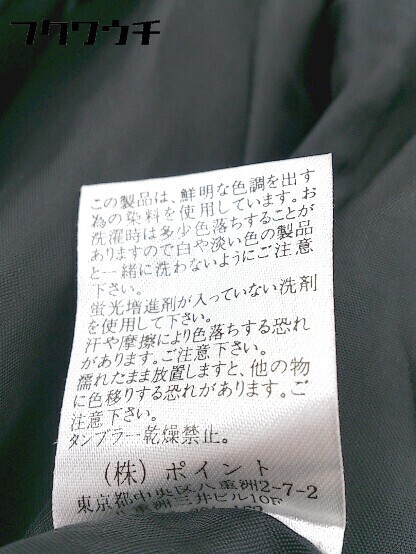 フクワウチ
この製品は、鮮明な色調を出す
為の染料を使用しています。お
洗濯時は多少色落ちすることが
ありますので白や淡い色の製品
と一緒に洗わないようにご注意
下さい。
蛍光増進剤が入っていない洗剤
を使用して下さい。
汗や摩擦により色落ちする恐れ
があります。ご注意下さい。
濡れたまま放置しますと、他の物
に色移りする恐れがあります。ご
注意下さい。
タンブラー乾燥禁止。
(株) ポイント
東京都中央区八重洲2-7-2
八重洲三井ビル10F